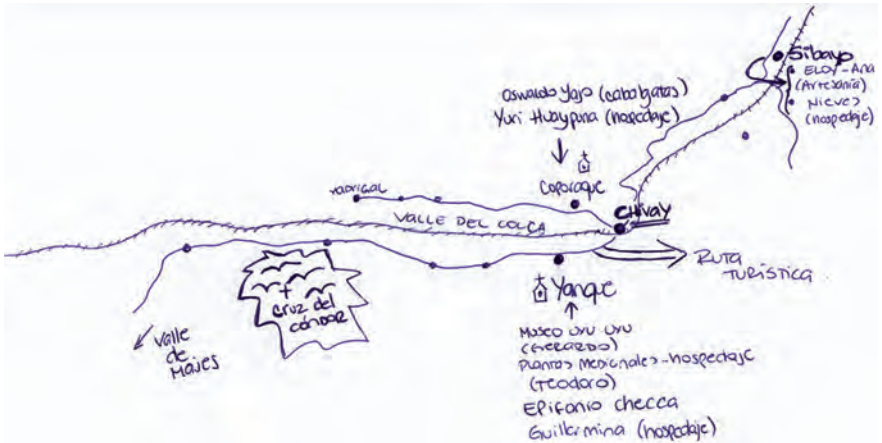 Sibayo
ELOY-Ana
(Artesanía)
Nieves
(hospedaje)
Oswaldo Yajo (cabalgatas)
Yuri Huaypuna (hospedaje)
Coporaque
MADRIGAL
VALLE DEL COLCA
CHIVAY
RUTA
TURÍSTICA
Yanque
cruz del
cóndor
Valle
de
Majes
Museo UYU UYU
(GERARDO)
Plantas Medicinales-hospedaje
(TEODORO)
Epifanio Checca
Guillermina (hospedaje)